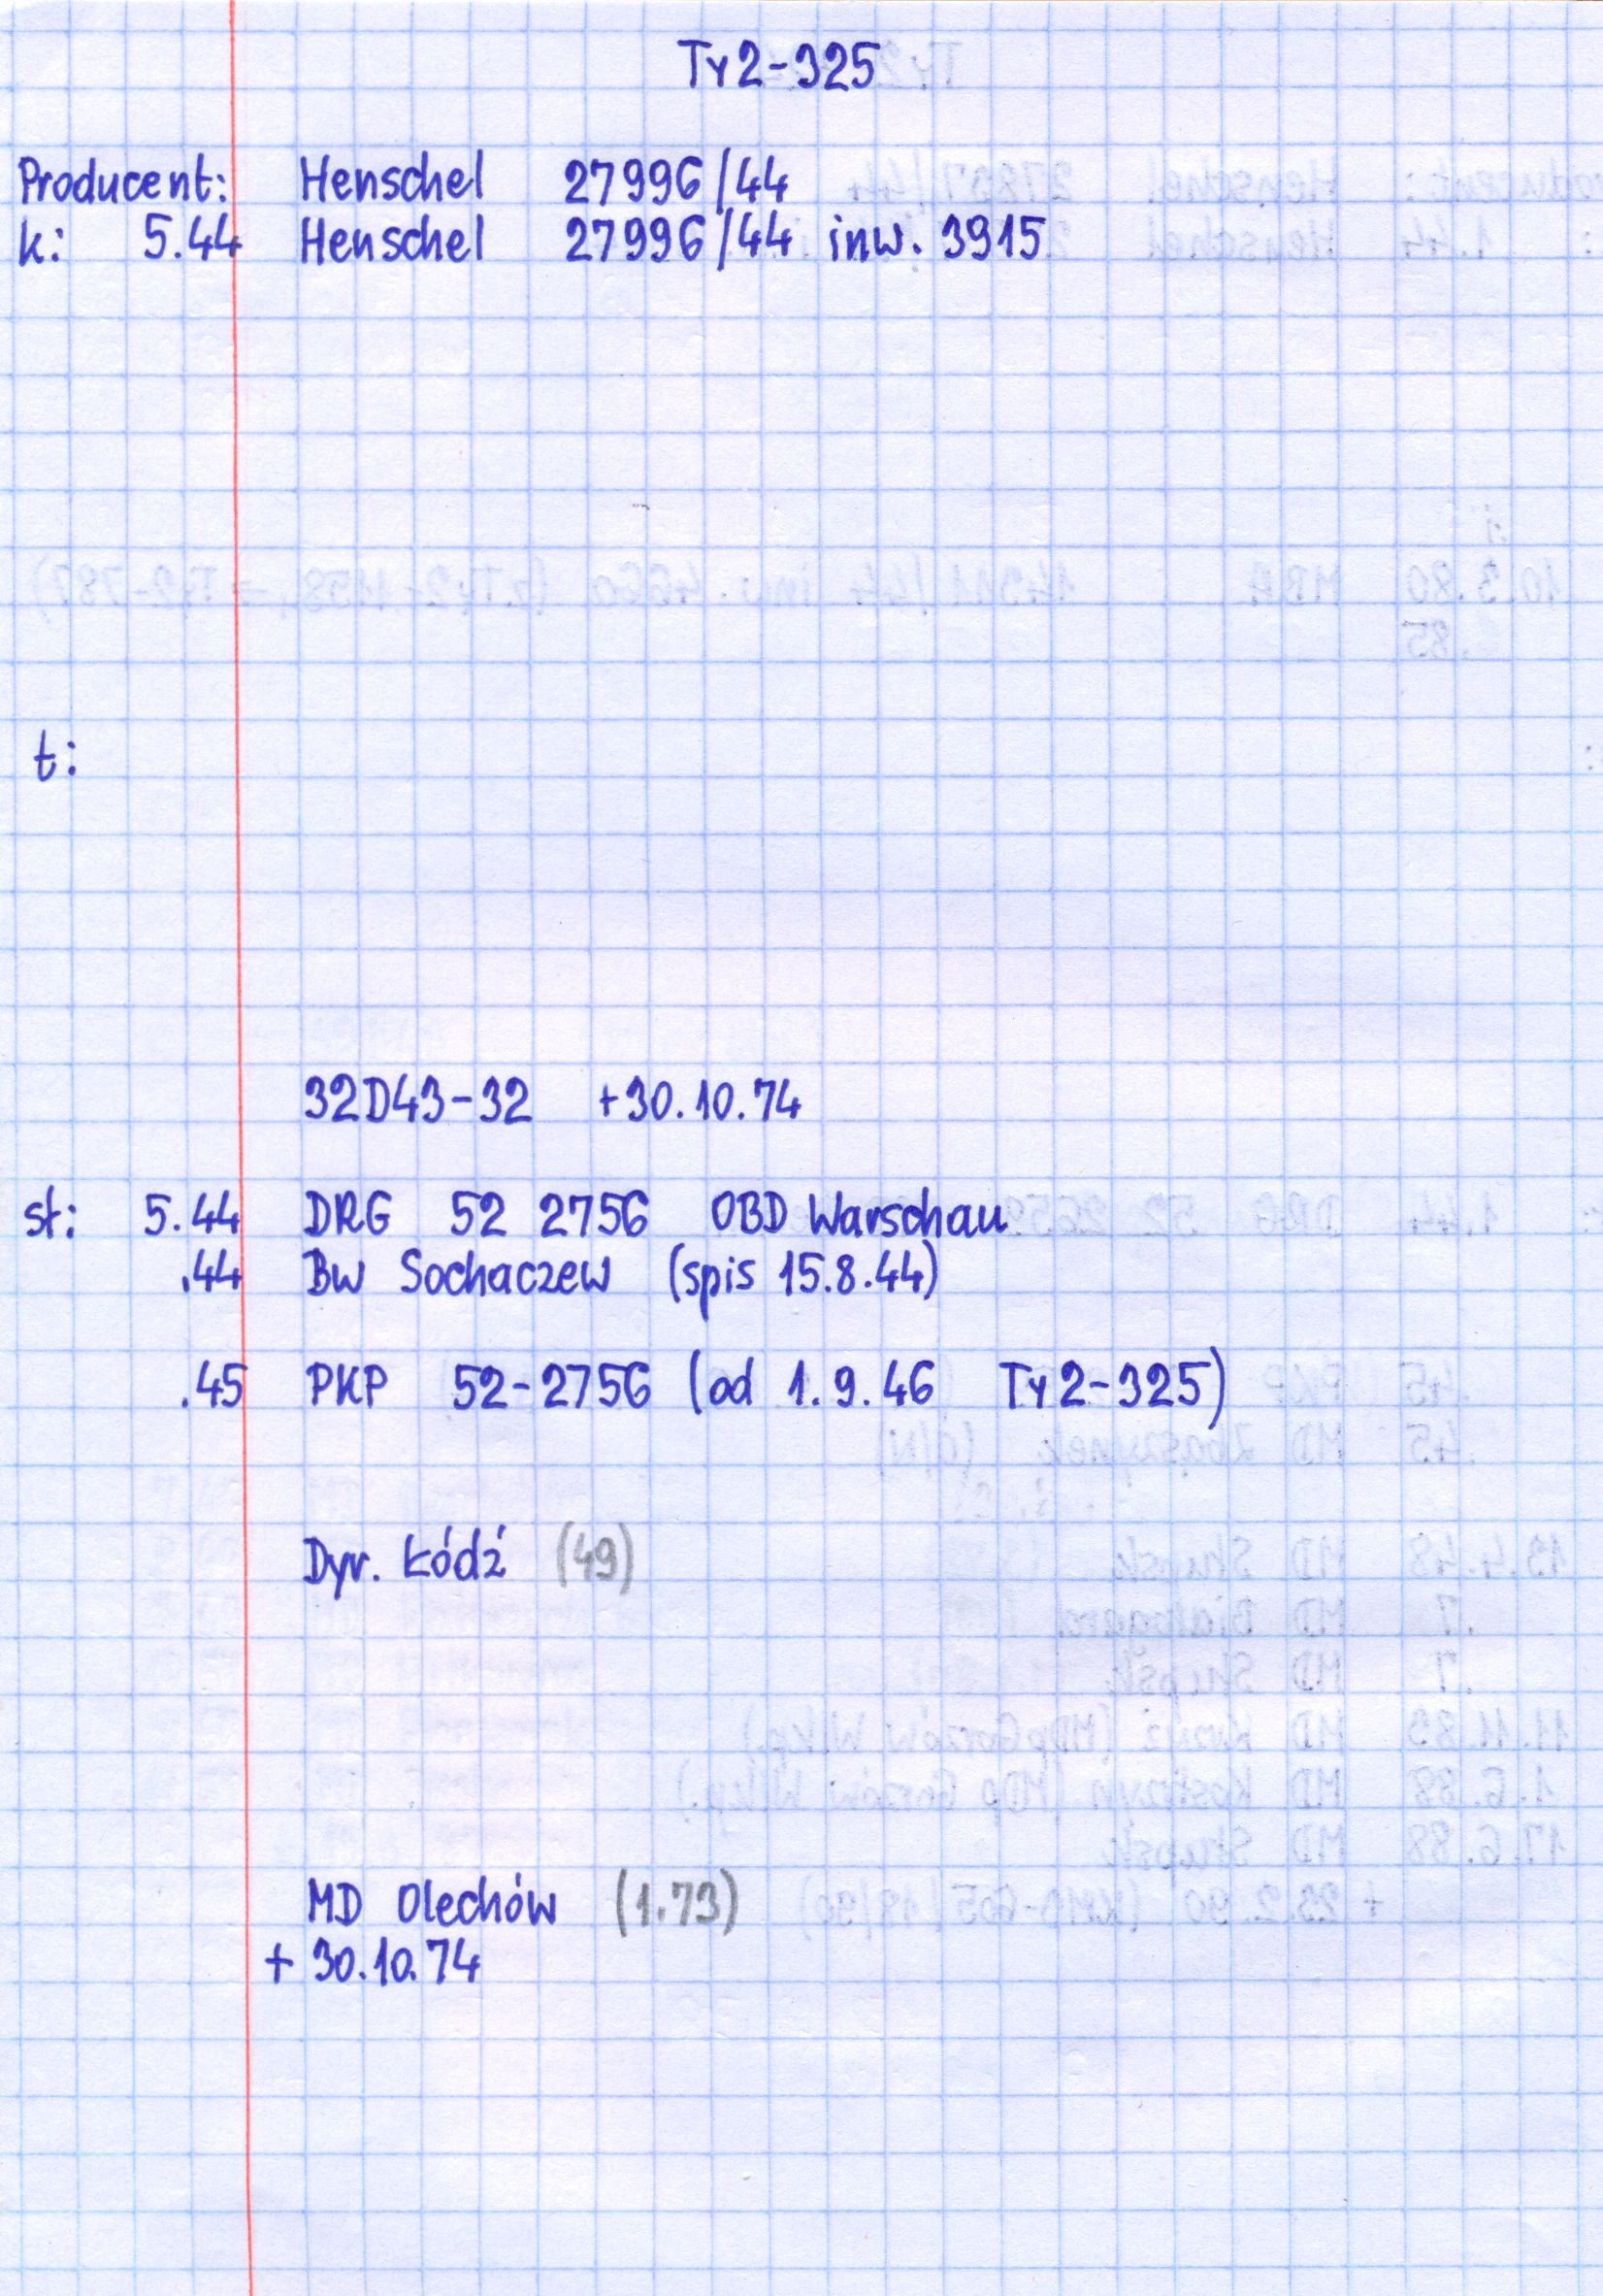 Ty2-325
Producent: Henschel 27996/44
k: 5.44 Henschel 27996/44 inw. 3915
t:
32D43-32 +30.10.74
st: 5.44 DRG 52 2756 OBD Warschau
.44 Bw Sochaczew (spis 15.8.44)
.45 PKP 52-2756 (od 1.9.46 Ty2-325)
Dyr. Łódź (49)
MD Olechów (1.73)
+ 30.10.74